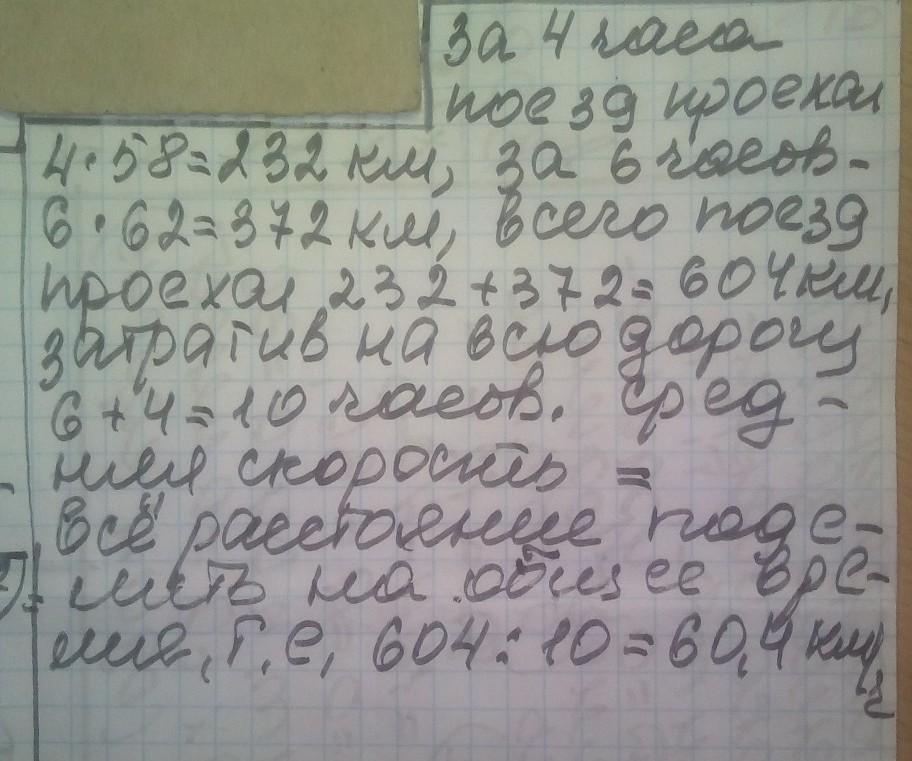 За 4 часа
поезд проехал
4·58=232 км, за 6 часов-
6·62=372 км, всего поезд
проехал 232+372=604 км,
затратив на всю дорогу
6+4=10 часов. Сред-
няя скорость =
всё расстояние поде-
лить на общее вре-
мя, т.е, 604:10=60,4 км/ч